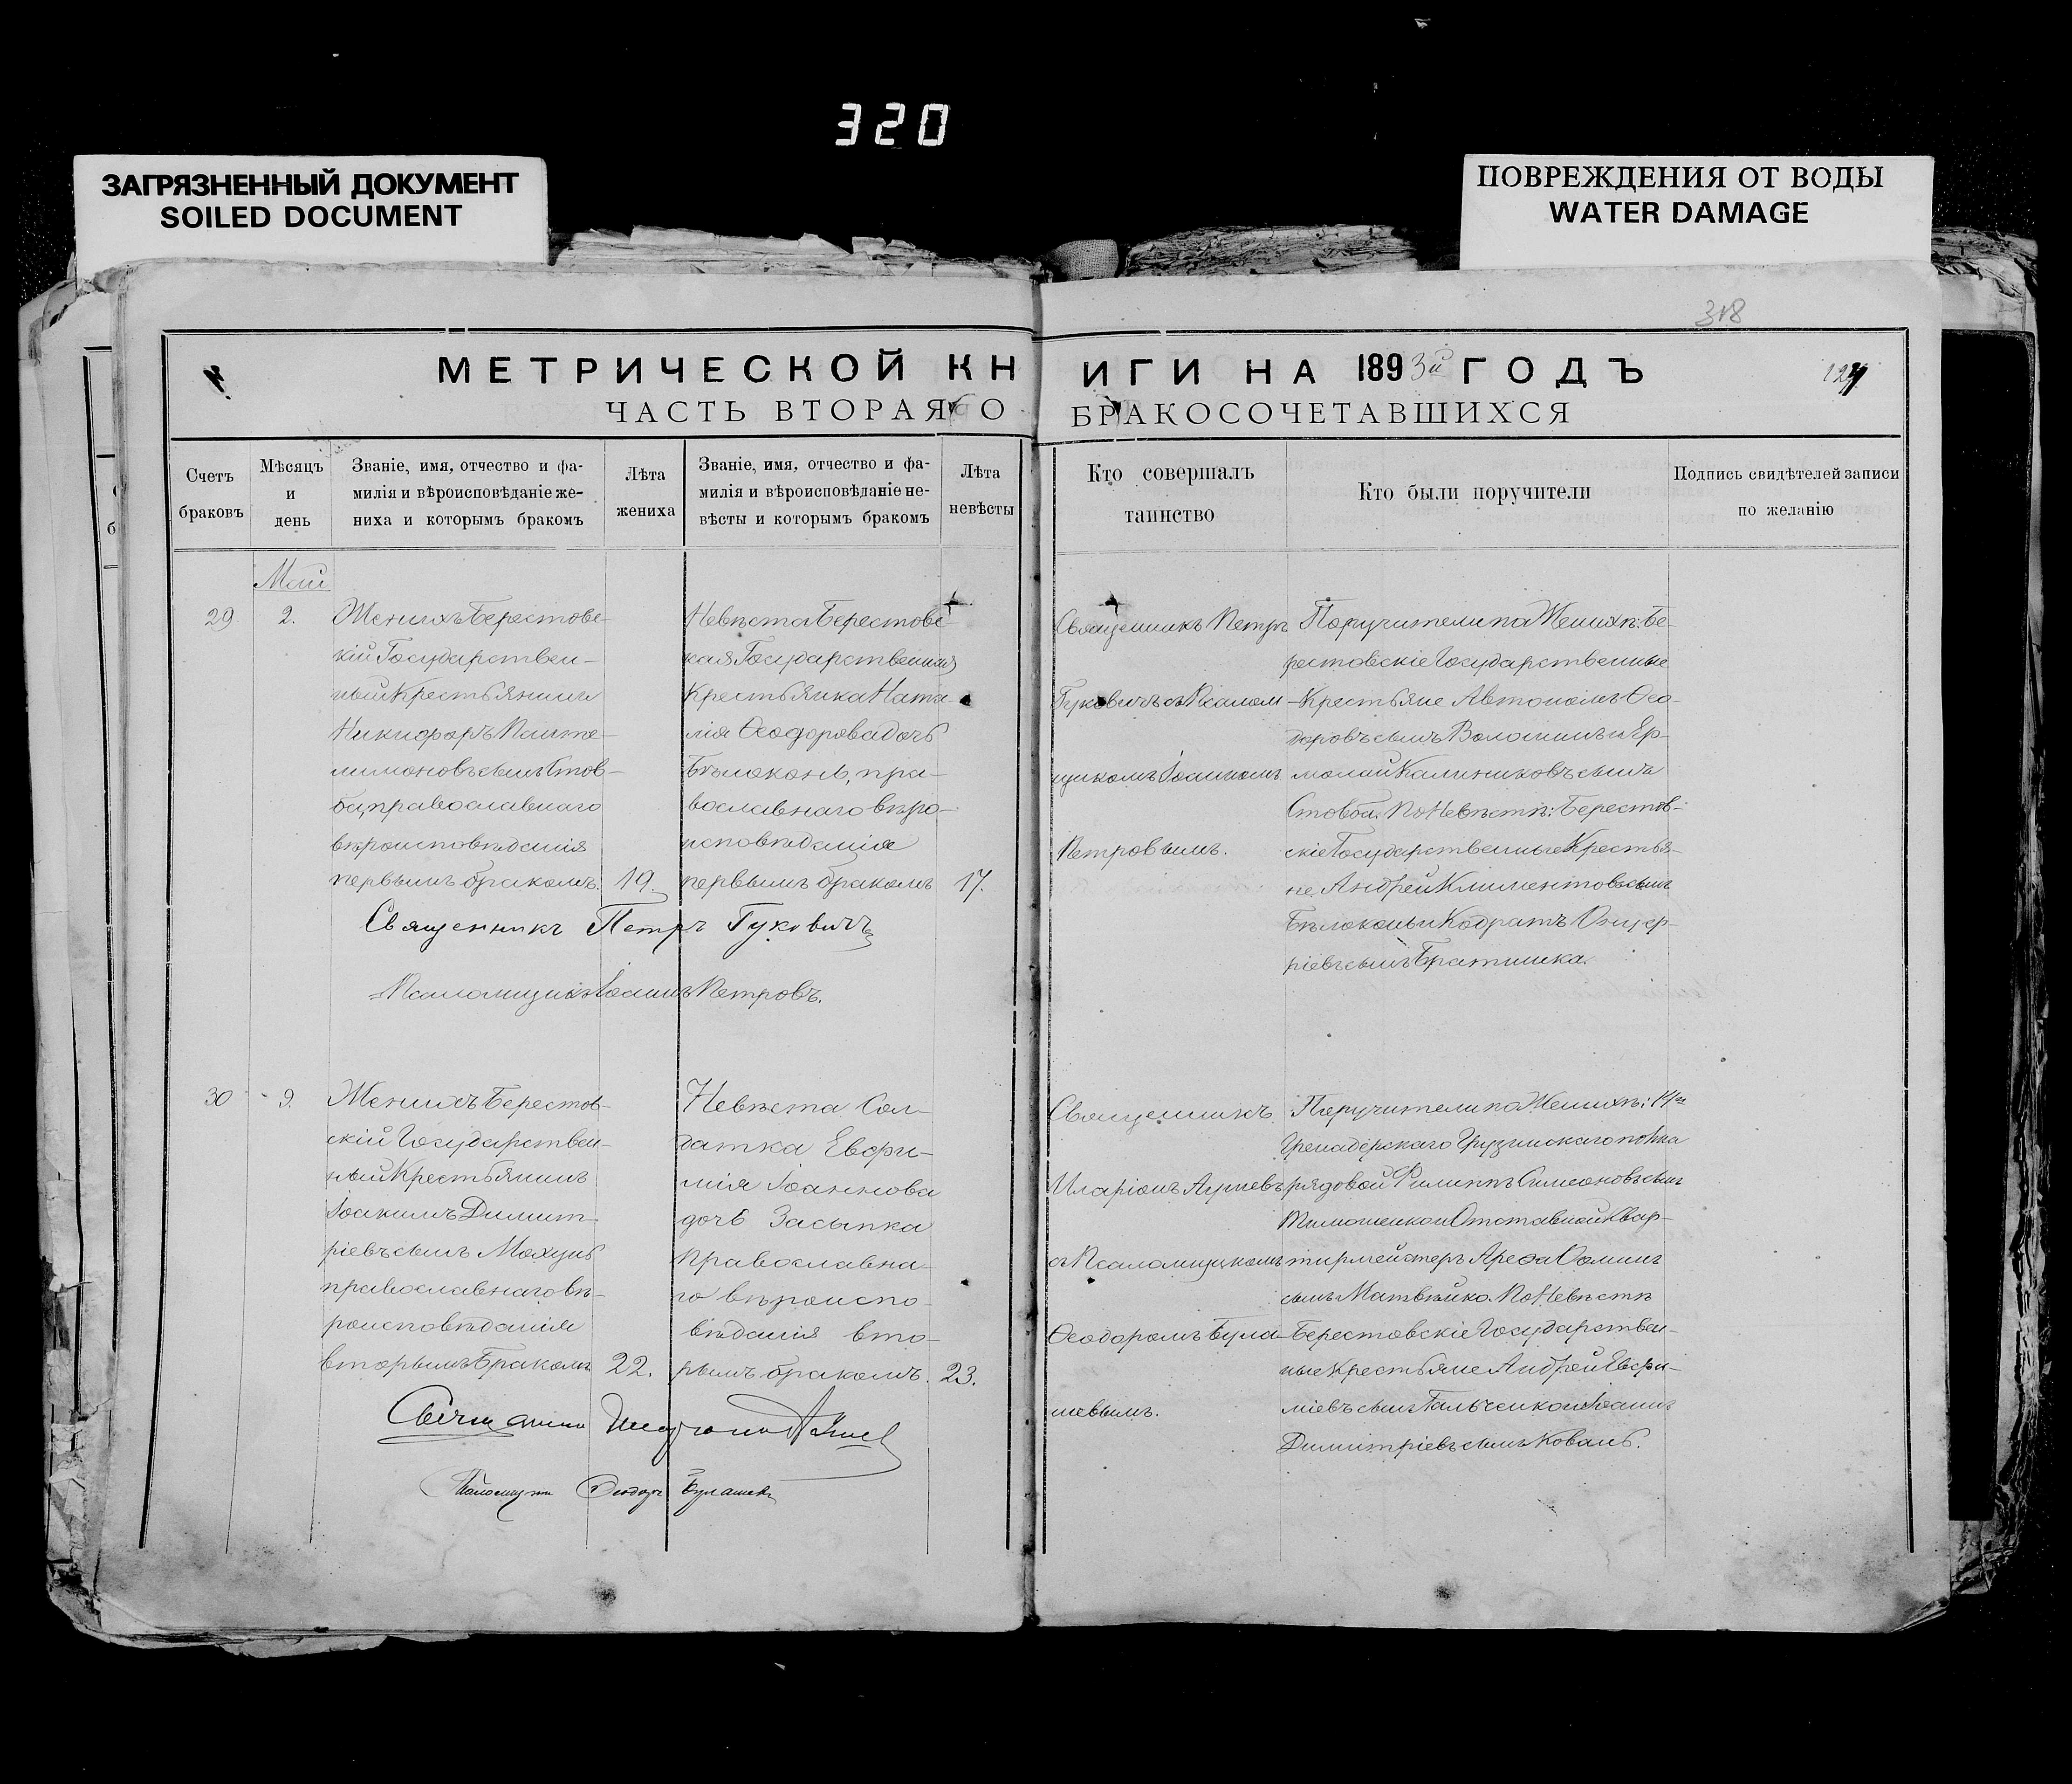 320
ЗАГРЯЗНЕННЫЙ ДОКУМЕНТ
SOILED DOCUMENT
ПОВРЕЖДЕНИЯ ОТ ВОДЫ
WATER DAMAGE
318
МЕТРИЧЕСКОЙ КНИГИ НА 1893й ГОДЪ
ЧАСТЬ ВТОРАЯ О БРАКОСОЧЕТАВШИХСЯ
Счетъ
браковъ
Мѣсяцъ
и
день
Званіе, имя, отчество и фа-
милія и вѣроисповѣданіе же-
ниха и которымъ бракомъ
Лѣта
жениха
Званіе, имя, отчество и фа-
милія и вѣроисповѣданіе не-
вѣсты и которымъ бракомъ
Лѣта
невѣсты
Кто совершалъ
таинство
Кто были поручители
Подпись свидѣтелей записи
по желанію
Май
29
2.
Женихъ Берестовс
кій Государствен-
ный Крестьянинъ
Никифоръ Панте-
лимоновъ сынъ Стов-
ба, православнаго
вѣроисповѣданія
первымъ бракомъ.
19.
Невѣста Берестовс
кая Государственная
Крестьянка Ната-
лія Ѳеодорова дочь
Бѣлоконь, пра-
вославнаго вѣро-
исповѣданія
первымъ бракомъ
17.
Священникъ Петръ
Гуковичъ съ Псалом
щикомъ Іоанномъ
Петровымъ.
Поручители по Женихѣ: Бе-
рестовскіе Государственные
Крестьяне Автономъ Ѳео-
доровъ сынъ Волошинъ и Ер-
молай Калиниковъ сынъ
Стовба. По Невѣстѣ: Берестов-
скіе Государственные Крестья-
не Андрей Климентовъ сынъ
Бѣлоконь и Кодратъ
ріевъ сынъ Братишка.
Священникъ Петръ Гуковичъ
Псаломщикъ Іоаннъ Петровъ.
30
9.
Женихъ Берестов-
скій Государствен-
ный Крестьянинъ
Іоакимъ Димит-
ріевъ сынъ Махунь
православнаго вѣ-
роисповѣданія
вторымъ бракомъ
22.
Невѣста Сол-
датка Евфи-
мія Іоаннова
дочь Засыпка
Православна-
го вѣроиспо-
вѣданія вто-
рымъ бракомъ.
23.
Священникъ
Иларіонъ
съ Псаломщикомъ
Ѳеодоромъ Була-
шевымъ.
Поручители по Женихѣ: 14го
Гренадерскаго Грузинскаго полка
рядовой Филиппъ Симеоновъ сынъ
Тимошенко и Отставной Квар-
тирмейстеръ Арефа Ѳоминъ
сынъ Матвѣйко. По Невѣстѣ
Берестовскіе Государствен-
ные Крестьяне Андрей Евфи-
міевъ сынъ Гальченко и Іоаннъ
Димитріевъ сынъ Коваль.
Псаломщикъ Ѳеодоръ Булашевъ